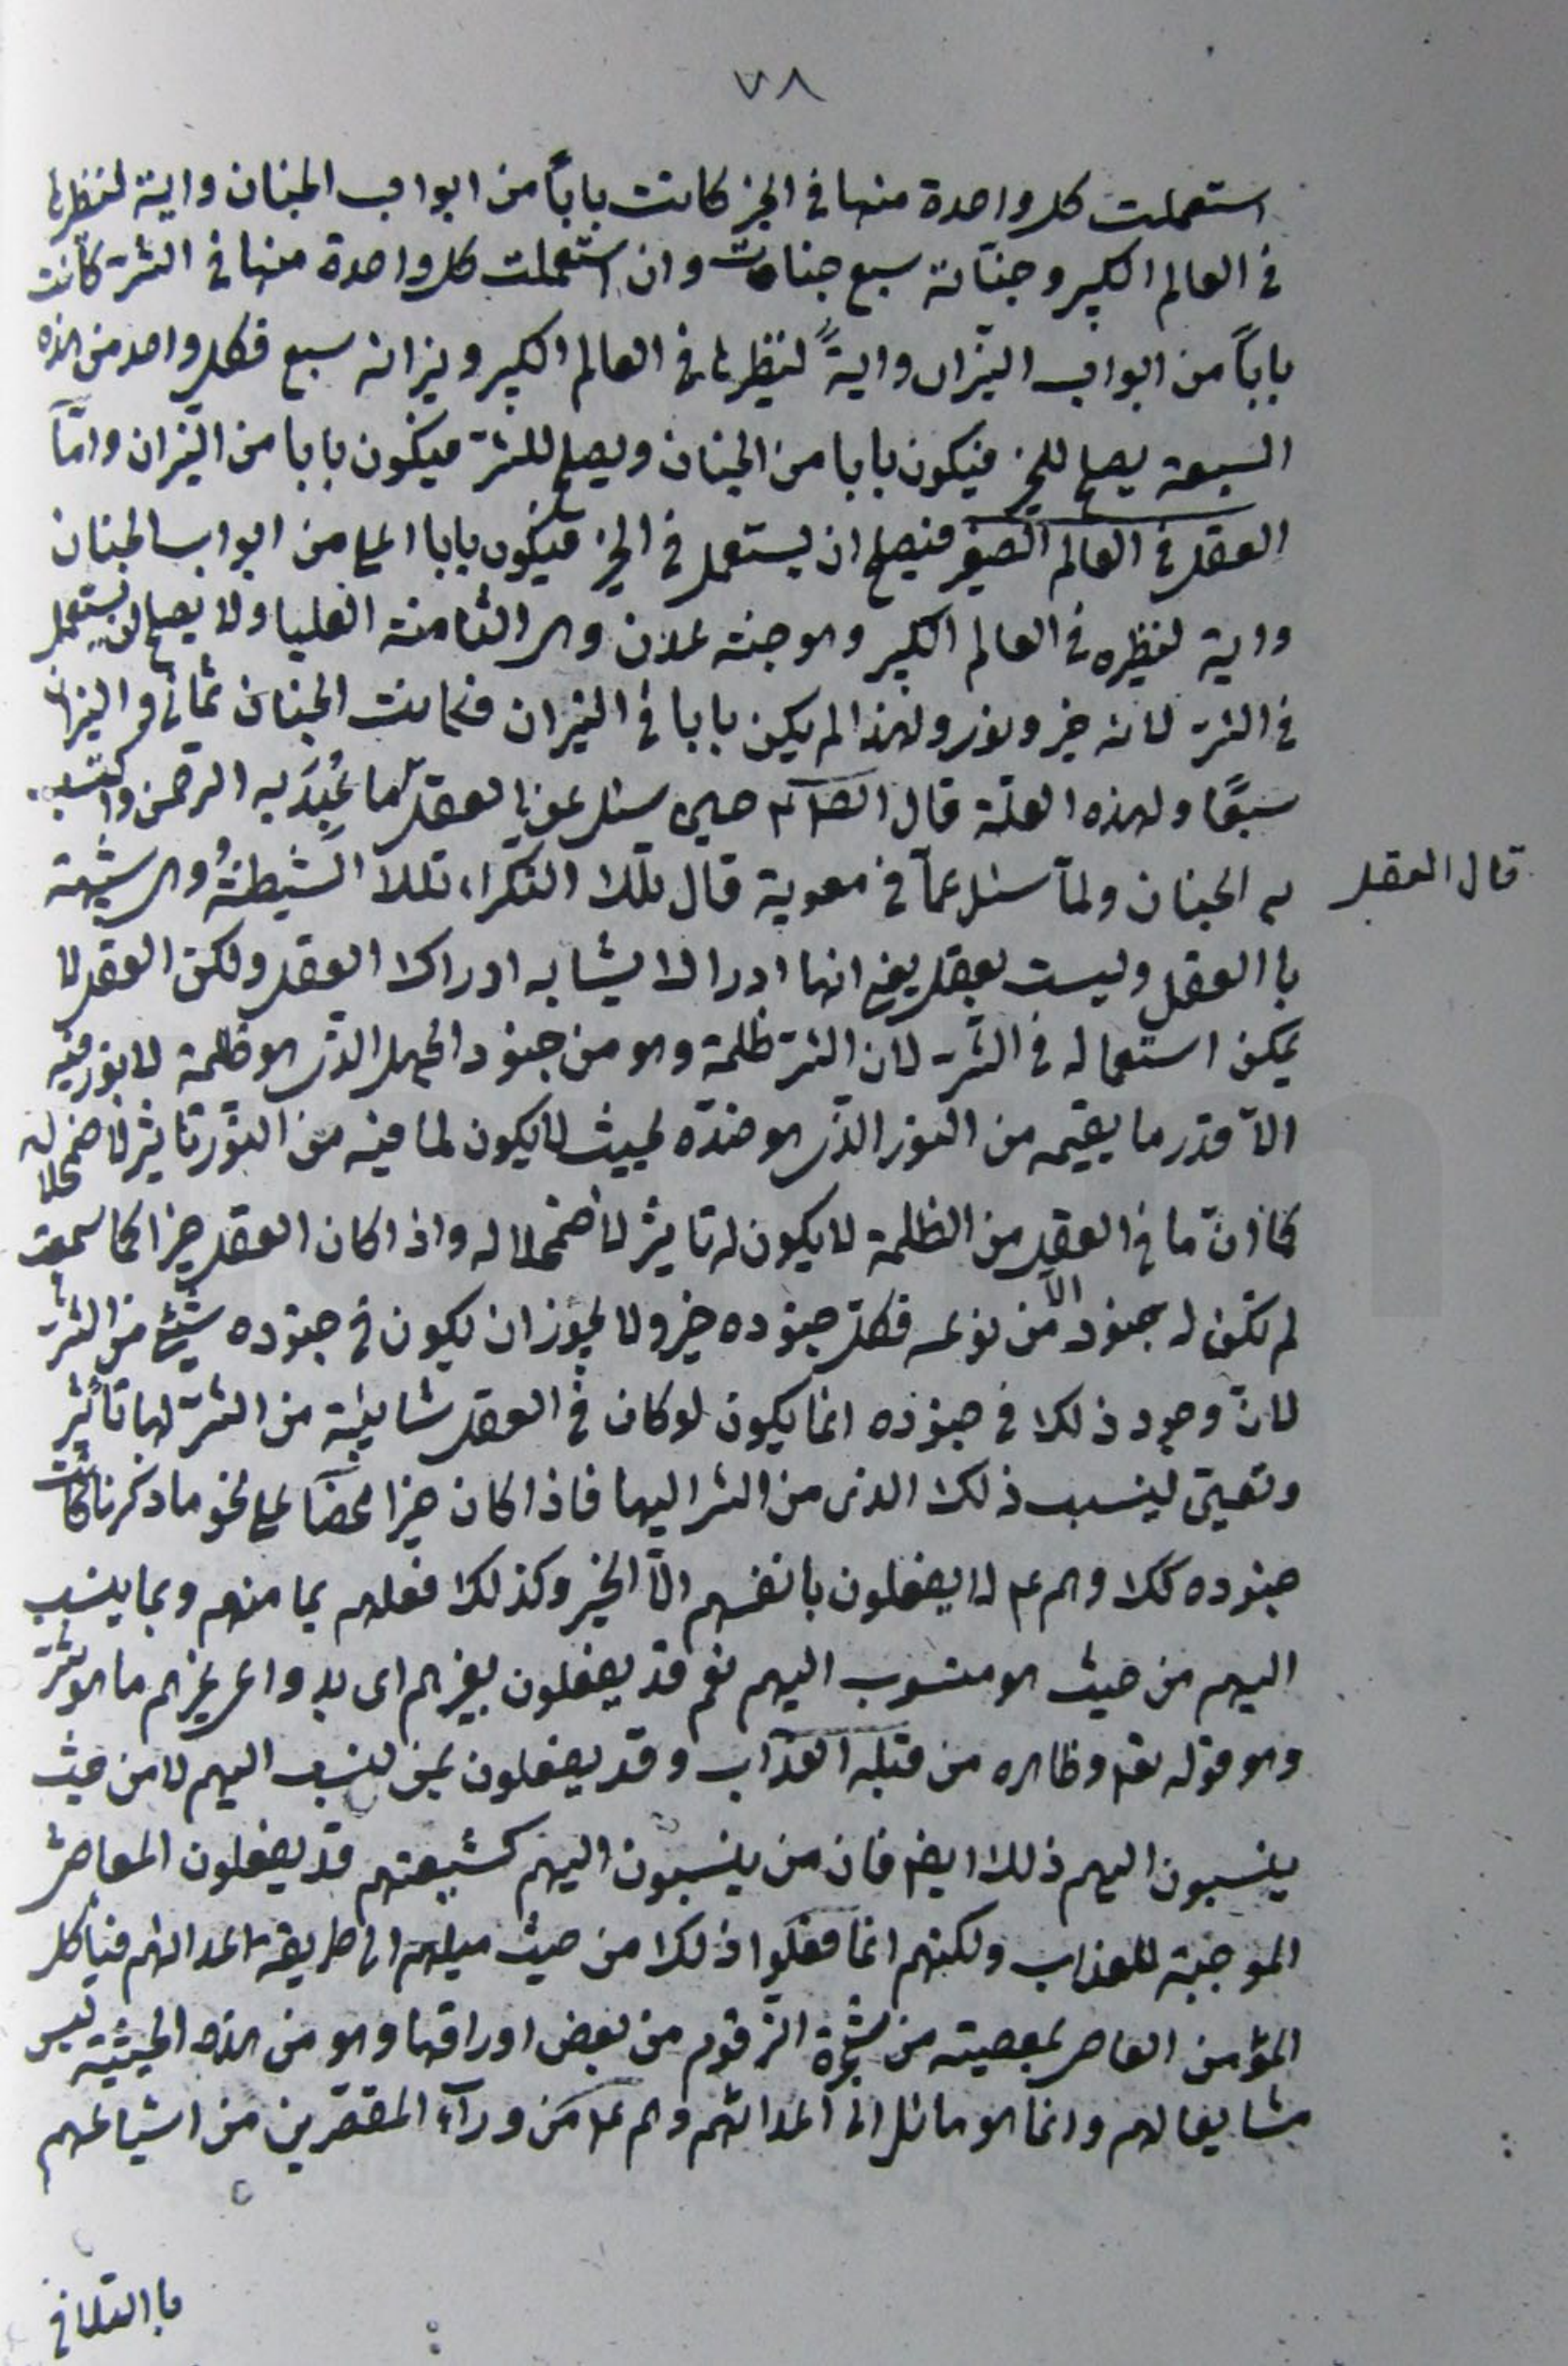 ٧٨
استعملت كل واحدة منها فى الخير كانت باباً من ابواب الجنان واية لنظيرها
فى العالم الكبير وجنّاته سبع جنات وان استعملت كل واحدة منها فى الشر كانت
باباً من ابواب النيّران وايةً لنظيرها فى العالم الكبير ونيرانه سبع فكل واحد من هذه
السبعة يصلح للخير فيكون بابا من الجنان ويصلح للشر فيكون بابا من النيران وامّا
العقل فى العالم الصغير فيصلح ان يستعمل فى الخير فيكون بابا اعلى من ابواب الجنان
وواية لنظيره فى العالم الكبير وهو جنة عدن وهى الثامنة العليا ولا يصلح لان يستعمل
فى الشر لانه خير ونور ولهذا لم يكن بابا فى النيران فكانت الجنان ثمانى والنيران
سبعًا ولهذه العلّة قال الصادق ع حين سئل عن العقل ما عُبِدَ به الرحمن واكتسب
به الجنان ولمّا سئل عمّا فى معوية قال تلك النكراء تلك الشيطنةُ وهى شبيهة
قال العقل
با العقل وليست بعقل يعنى انها ادراك يشابه ادراك العقل ولكن العقل لا
يمكن استعماله فى الشر لان الشر ظلمة وهو من جنود الجهل الذى هو ظلمة لا نور فيه
الّا قدر ما يقيمه من النور الذى هو ضدّه بحيث لا يكون لما فيه من النور تاثير لاضمحلاله
كما انّ ما فى العقل من الظلمة لا يكون له تاثير لاضمحلاله واذا كان العقل خيرا كما سمعت
لم تكن له جنود الّا من نوعه فكلّ جنوده خير ولا يجوز ان يكون فى جنوده شيئ من الشر
لانّ وجود ذلك فى جنوده انما يكون لو كان فى العقل شايبة من الشر لها تاثير
وتعيّن لينسب ذلك الذى من الشر اليها فاذا كان خيرا محضاً على نحو ما ذكرنا كانت
جنوده كك وهم ع لا يفعلون بانفسهم الّا الخير وكذلك فعلهم بما منهم وبما ينسب
اليهم من حيث هو منسوب اليهم نعم قد يفعلون بغيرهم اى بدواعى غيرهم ما هو شر
وهو قوله تعم وظاهره من قبله العذاب وقد يفعلون بمن ينسب اليهم لا من حيث
ينسبون اليهم ذلك ايضم فان من ينسبون اليهم كشيعتهم قد يفعلون المعاصى
الموجبة للعذاب ولكنهم انما فعلوا ذلك من حيث ميلهم الى طريقة اعدائهم فيأكل
المؤمن العاصى بمعصيته من شجرة الزقوم من بعض اوراقها وهو من هذه الحيثية ليس
مشايعا لهم وانما هو مائل الى اعدائهم وهم ع من ورآء المقصّرين من اشياعهم
با التلافى